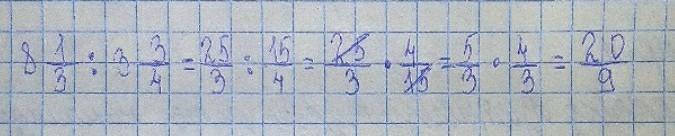 8 1/3 : 3 3/4 = 25/3 : 15/4 = 25/3 · 4/15 = 5/3 · 4/3 = 20/9